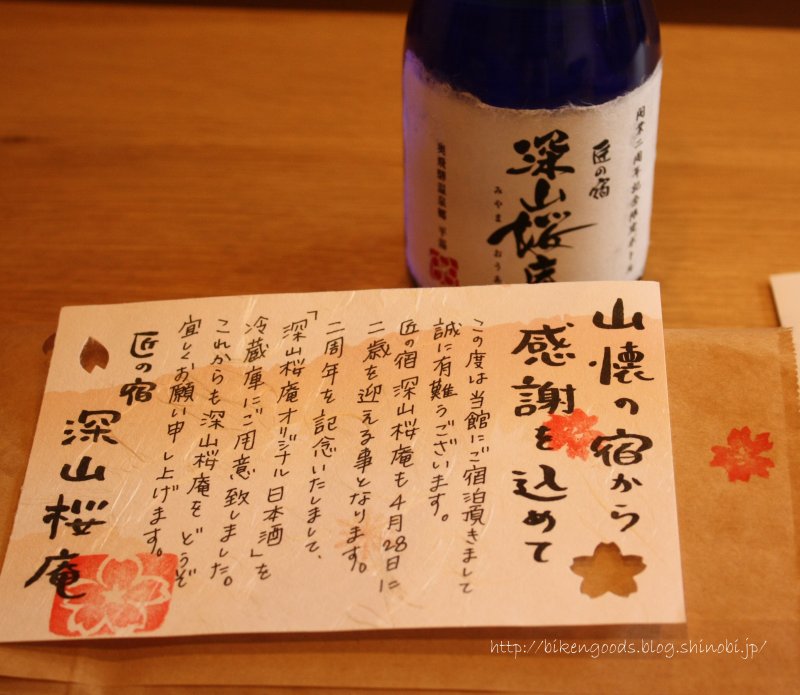 開業二周年記念限定ボトル
匠の宿
深山桜庵
みやま おうあ
奥飛騨温泉郷 平湯
山懐の宿から
感謝を込めて
この度は当館にご宿泊頂きまして
誠に有難うございます。
匠の宿 深山桜庵も4月28日に
二歳を迎える事となります。
二周年を記念いたしまして、
「深山桜庵オリジナル日本酒」を
冷蔵庫にご用意致しました。
これからも深山桜庵を どうぞ
宜しくお願い申し上げます。
匠の宿
深山桜庵
http://bikengoods.blog.shinobi.jp/